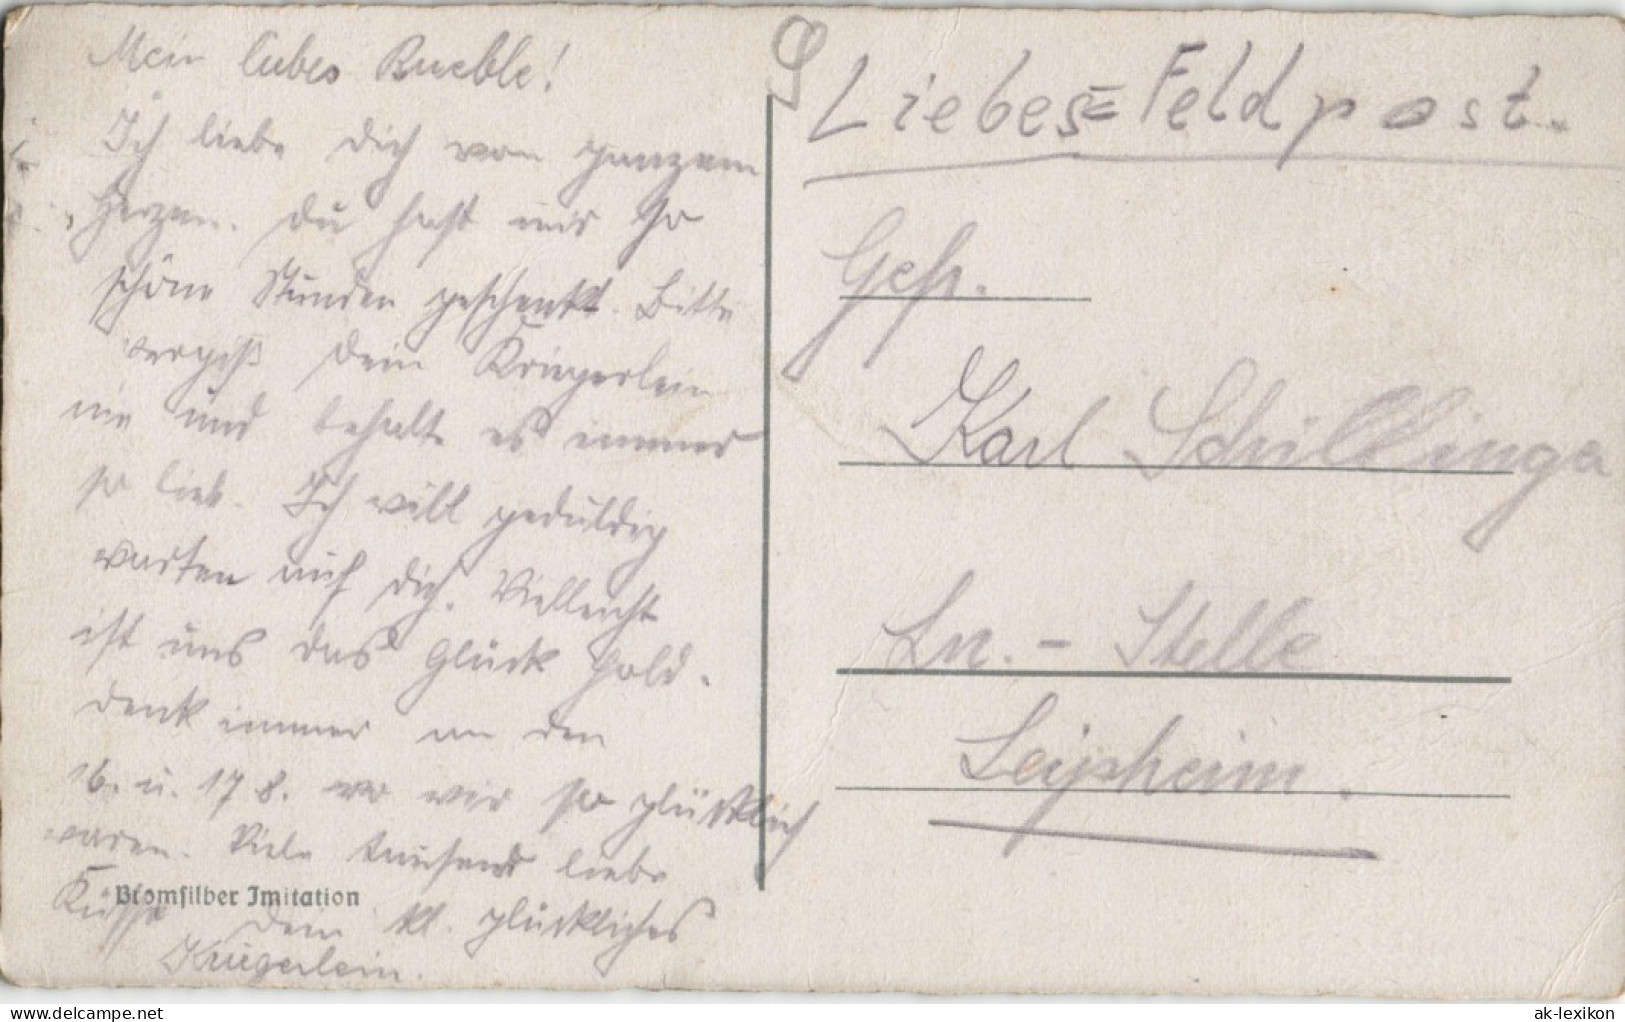 Mein liebes Bueble!
Ich liebe Dich von ganzem
Herzen. Du hast mir so
schöne Stunden geschenkt. Bitte
vergiß Dein Kriegerlein
nie und behalte es immer
so lieb. Ich will geduldig
warten auf Dich. Vielleicht
ist uns das Glück hold.
Denk immer an den
16. u. 17 8. wo wir so glücklich
waren. Viele tausend liebe
Küsse Dein kl. glückliches
Kriegerlein.
Bromsilber Imitation
Liebes=Feldpost.
Gefr.
Karl Schillinger
Ln.-Stelle
Leipheim.
delcampe.net
ak-lexikon